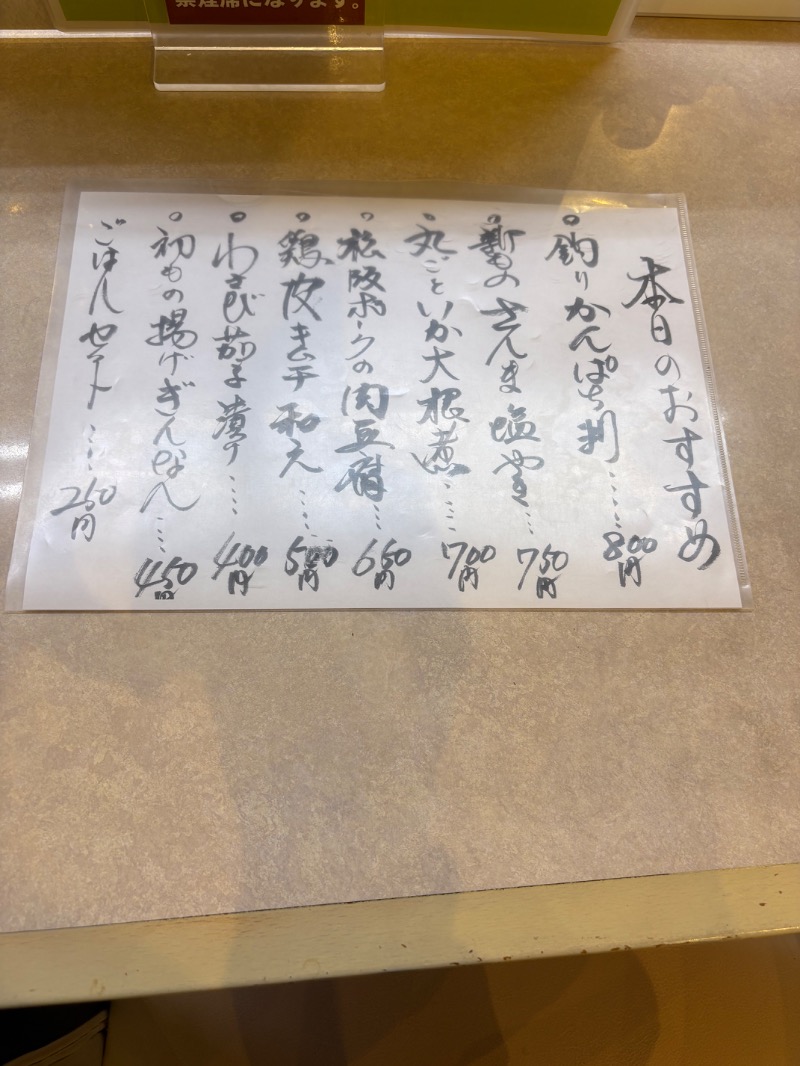 禁煙席になります。
本日のおすすめ
釣りかんぱち刺……800円
新もの さんま 塩焼…750円
丸ごといか大根煮……700円
松阪ポークの肉豆腐…650円
鶏皮キムチ和え……500円
わさび茄子漬け……400円
初もの揚げぎんなん……450円
ごはんセット……250円